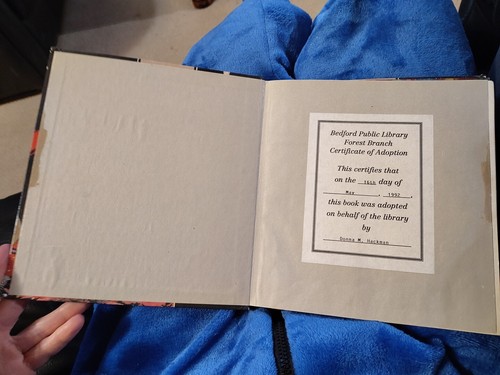 Bedford Public Library
Forest Branch
Certificate of Adoption
This certifies that
on the 16th day of
May, 1992,
this book was adopted
on behalf of the library
by
Donna M. Hackman